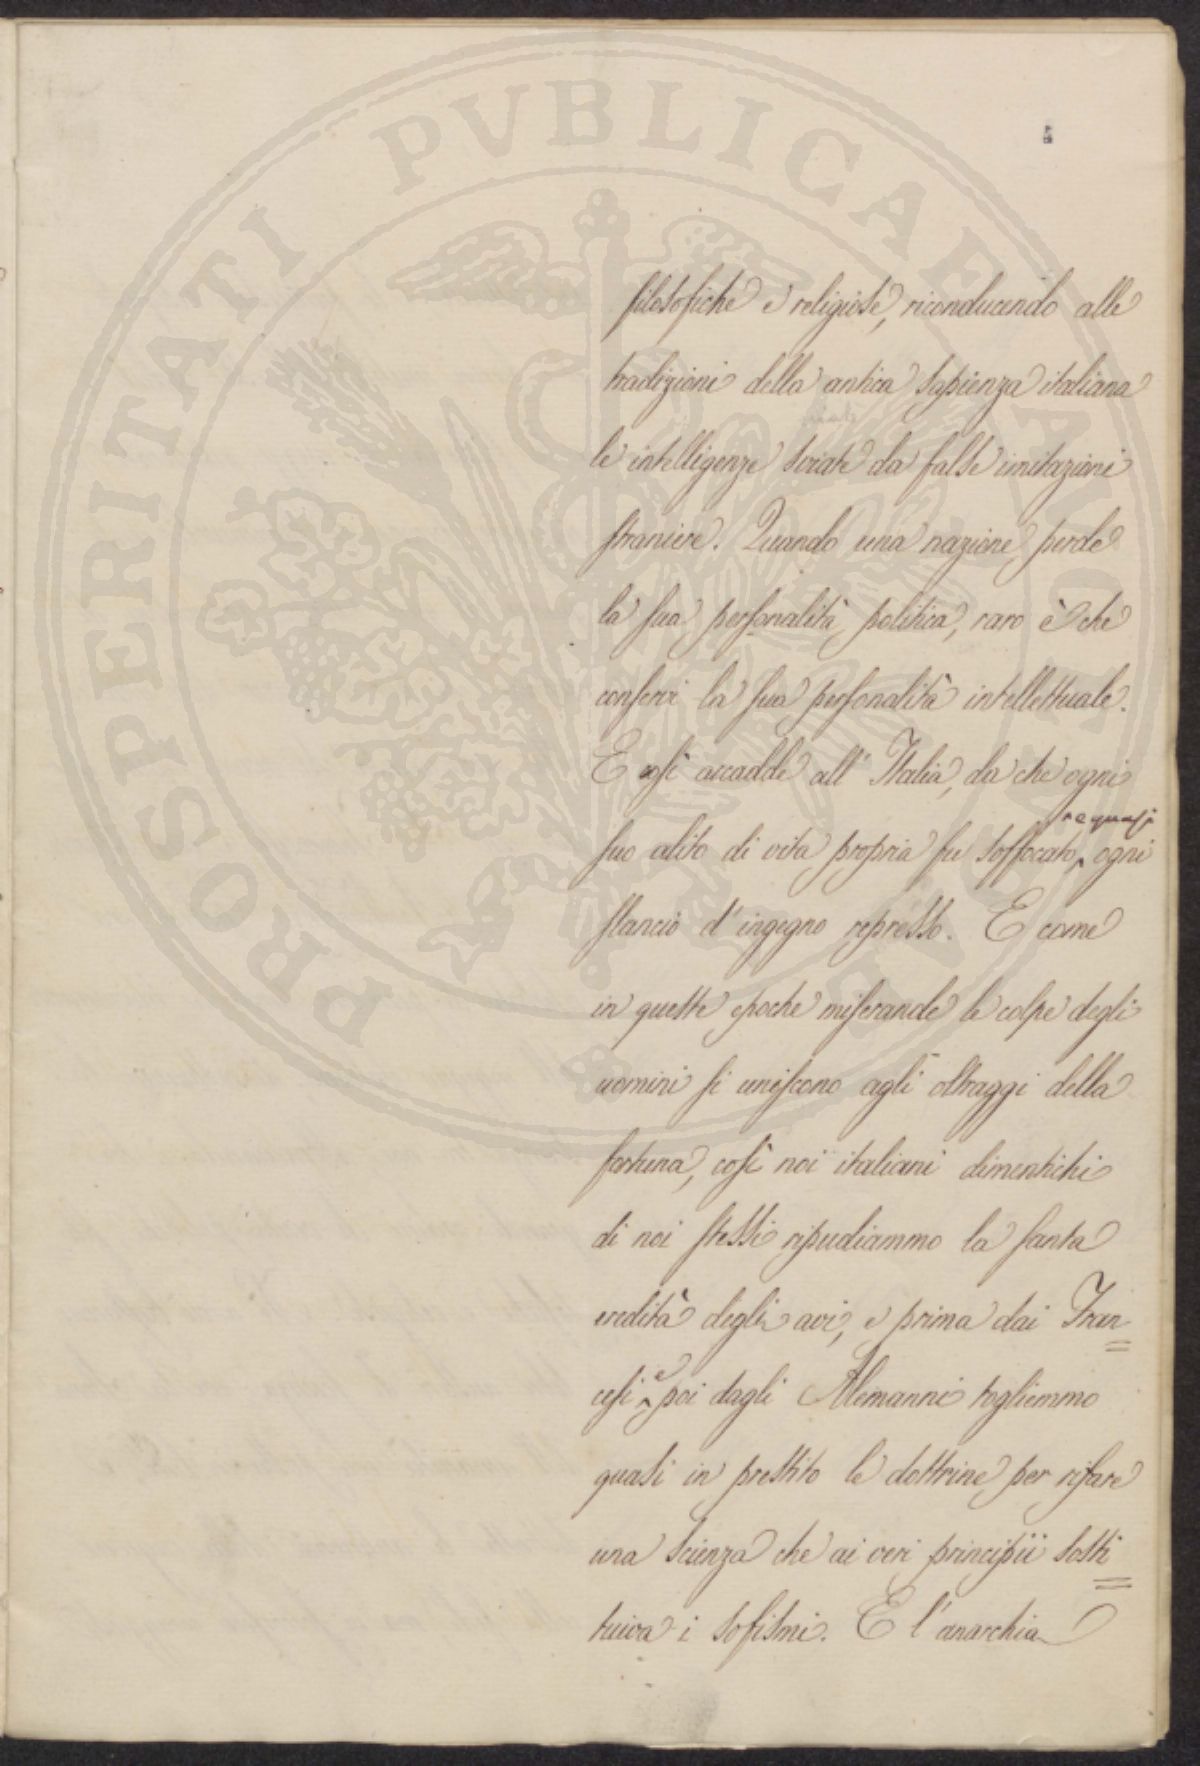 PROSPERITATI PVBLICAE AVGENDAE
filosofiche e religiose, riconducendo alle
tradizioni della antica sapienza italiana
le intelligenze sviate da false imitazioni
straniere. Quando una nazione perde
la sua personalità politica, raro è che
conservi la sua personalità intellettuale.
E così accadde all' Italia, da che ogni
e quasi
suo alito di vita propria fu soffocato, ogni
slancio d' ingegno represso. E come
in queste epoche miserande le colpe degli
uomini si uniscono agli oltraggi della
fortuna, così noi italiani dimentichi
di noi stessi ripudiammo la santa
eredità degli avi, e prima dai Fran=
cesi e poi dagli Alemanni togliemmo
quasi in prestito le dottrine per rifare
una scienza che ai veri principii sosti=
tuiva i sofismi. E l' anarchia